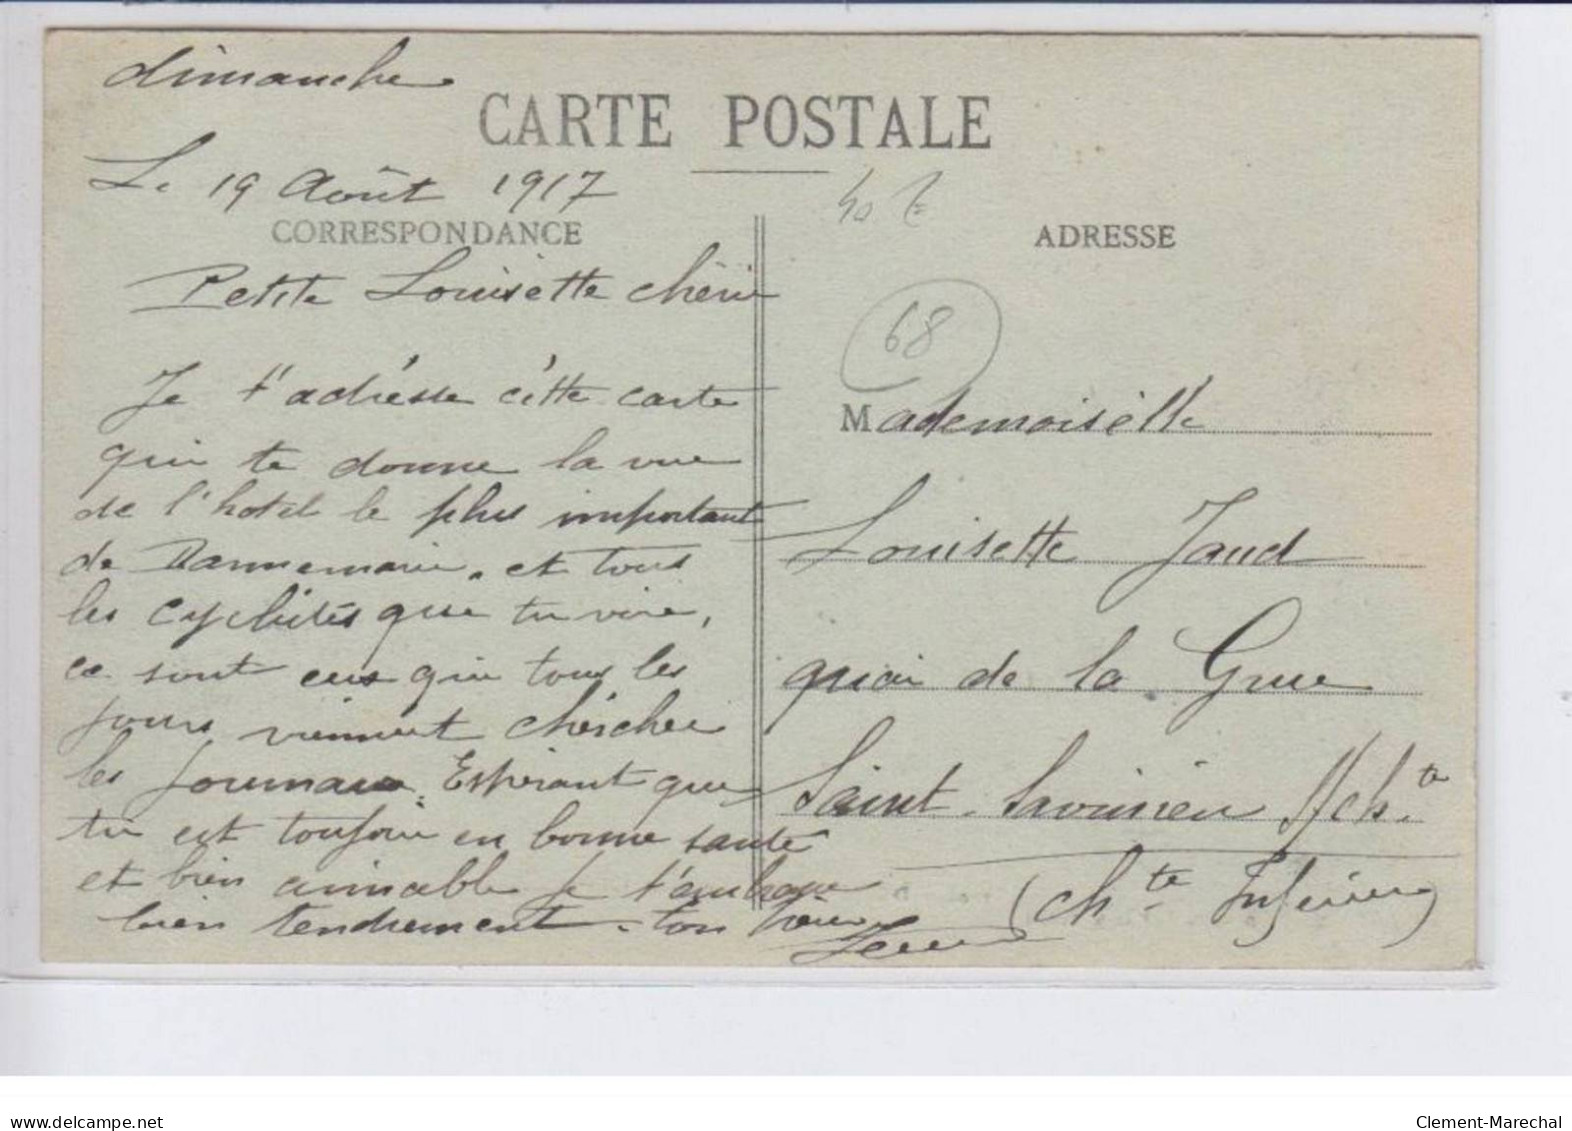 dimanche
CARTE POSTALE
Le 19 Août 1917
40 F
CORRESPONDANCE
ADRESSE
Petite Louisette chérie
68
Je t'adrésse cétte carte
qui te donne la vue
de l'hotel le plus important
de Dannemarie. et tous
les cyclistes que tu vire,
ce sont ceux qui tous les
jours viennent chercher
les journaux. Espérant que
tu est toujour en bonne santé
et bien aimable je t'embrasse
bien tendrement. ton
Mademoisélle
Louisette Jaud
quai de la Grue
Saint-Savinien s/ch.te
(Ch.te Inférieure)
delcampe.net
Clement-Marechal